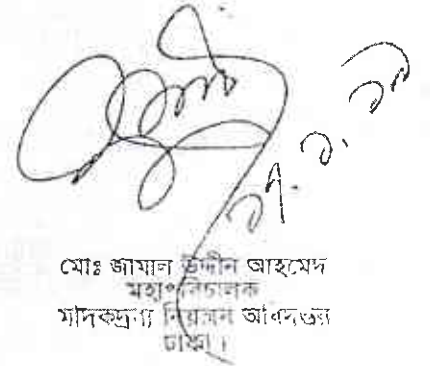 মোঃ জামাল উদ্দীন আহমেদ
মহাপরিচালক
মাদকদ্রব্য নিয়ন্ত্রন অধিদপ্তর
ঢাকা।